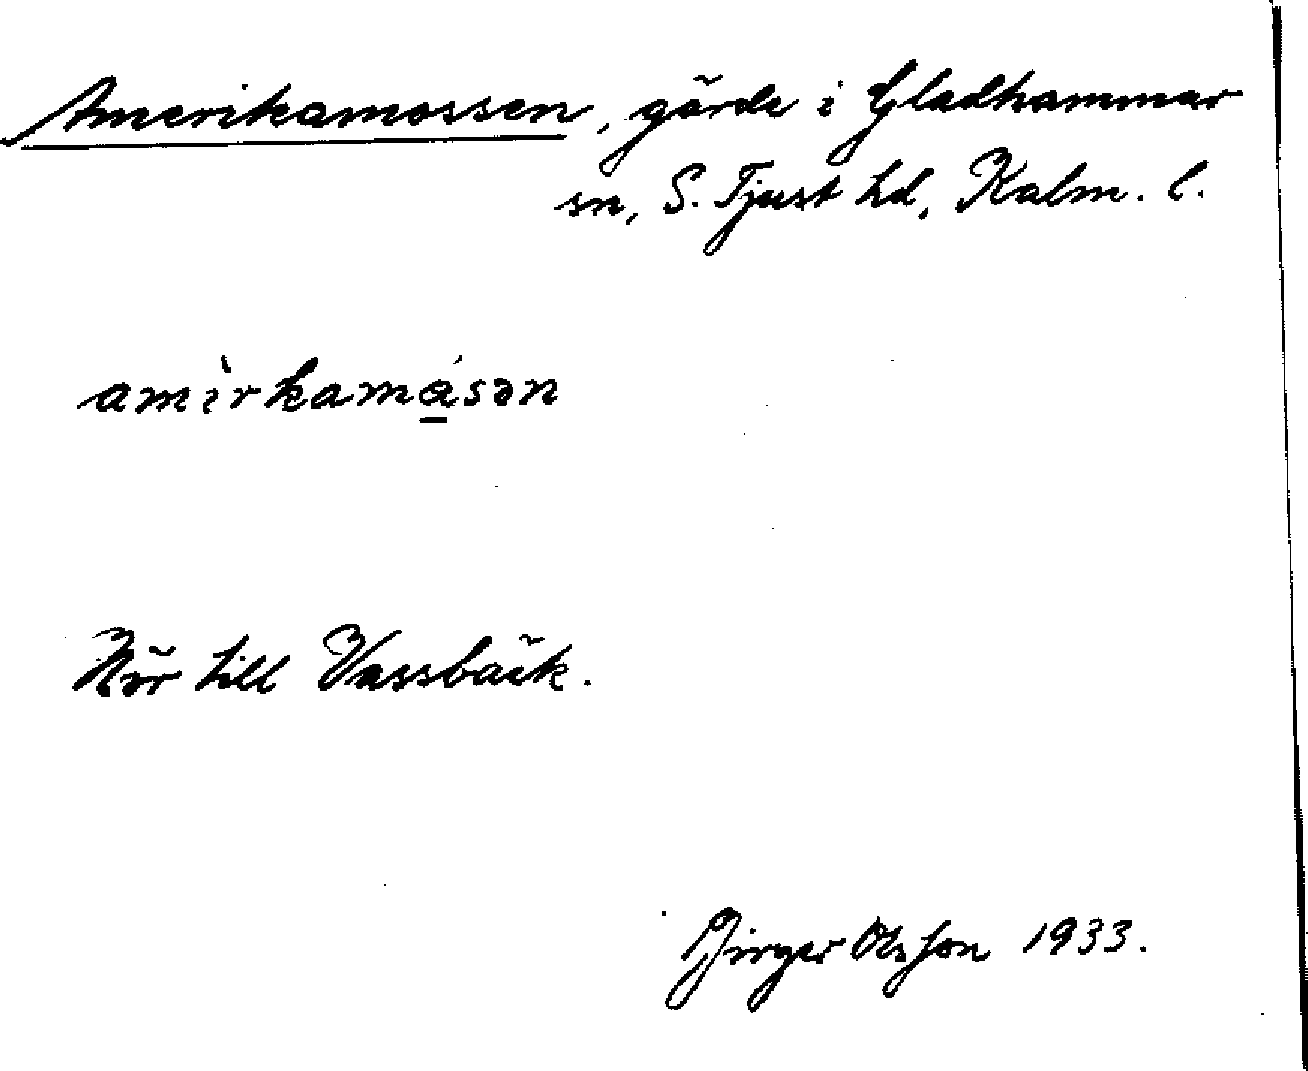 Amerikamossen, gärde i Gladhammar
sn, S. Tjust hd, Kalm. l.
amìrkamásən
Hör till Vassbäck.
Birger Olsson 1933.